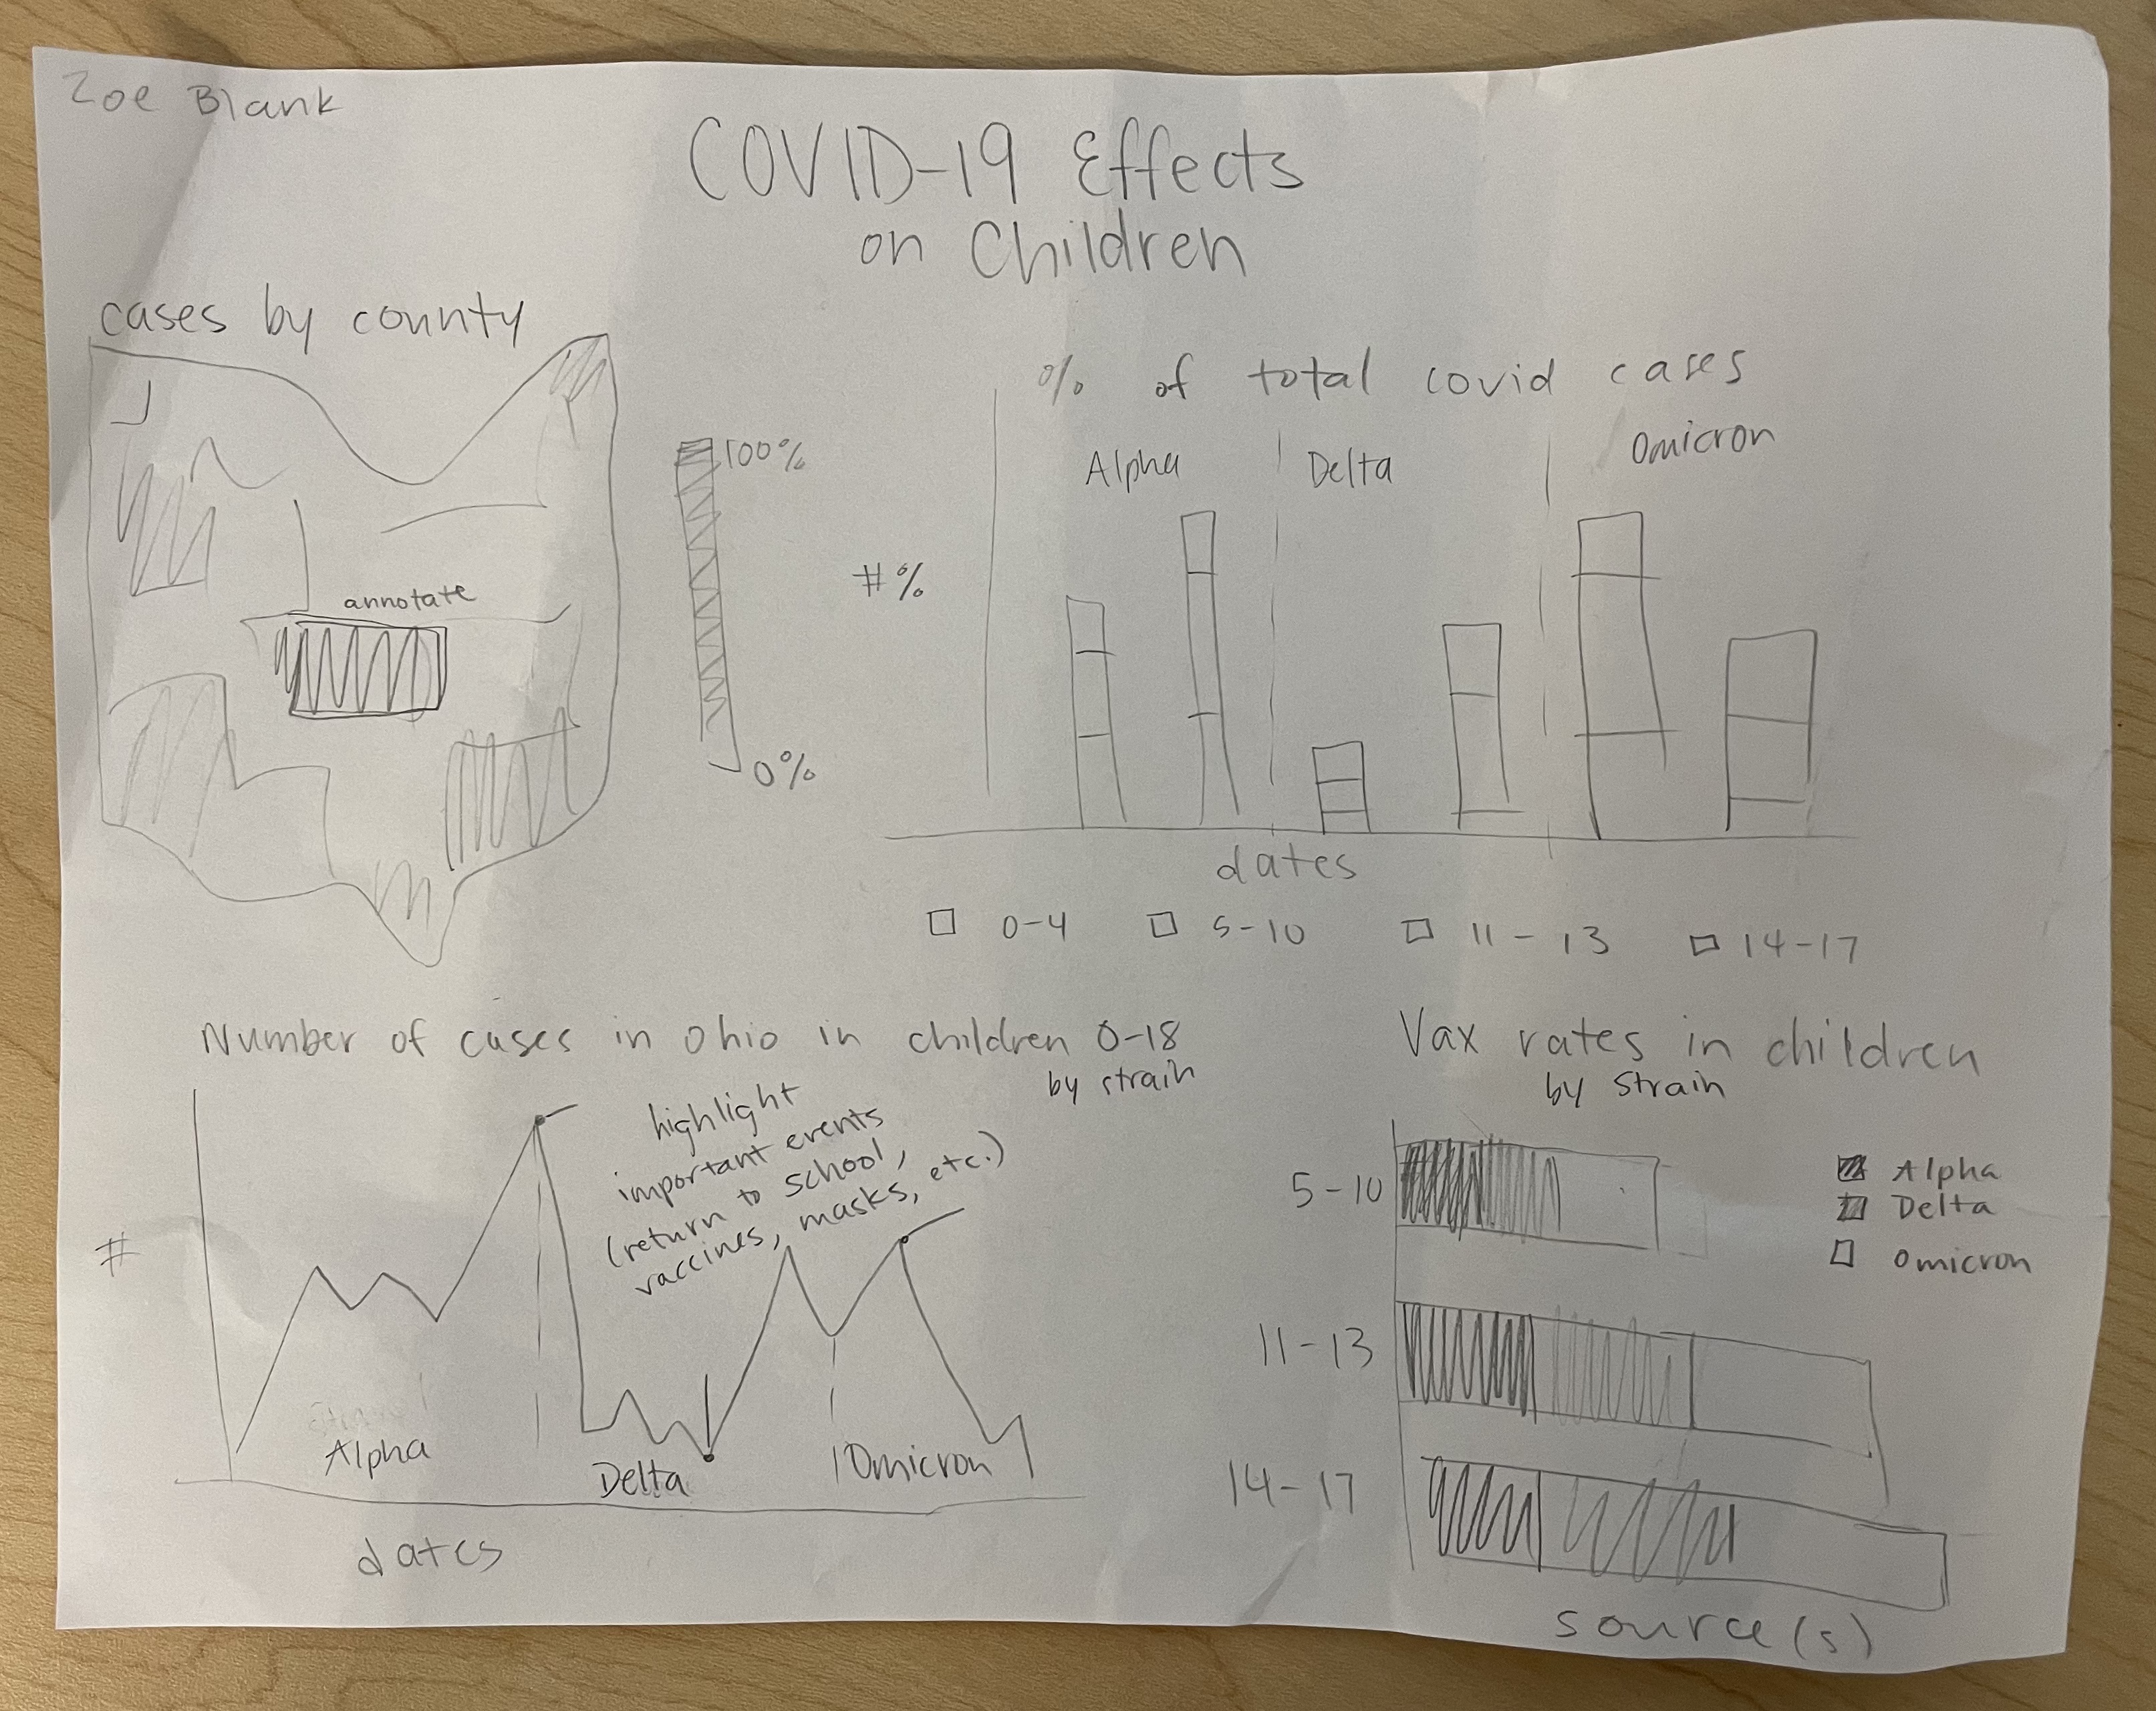 Zoe Blank
COVID-19 Effects
on Children
cases by county
annotate
100%
0%
% of total covid cases
Alpha
Delta
Omicron
#%
dates
0-4
5-10
11-13
14-17
Number of cases in Ohio in children 0-18
by strain
highlight
important events
(return to school,
vaccines, masks, etc.)
#
Alpha
Delta
Omicron
dates
Vax rates in children
by strain
5-10
11-13
14-17
Alpha
Delta
Omicron
source(s)